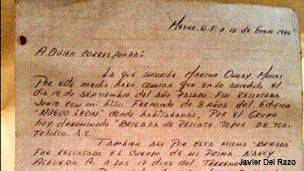 MEXICO, D.F. A 15 de ENERO 1986
A QUIEN CORRESPONDA:
LA QUE SUSCRIBE MARTHA
POR ESTE MEDIO HAGO CONSTAR QUE EN LO SUCEDIDO EL
DIA 19 DE SEPTIEMBRE DEL AÑO PASADO FUI RESCATADA
JUNTO CON MI HIJO FERNANDO DE 3 AÑOS DEL EDIFICIO
"NUEVO LEON" DONDE HABITABAMOS, POR EL GRUPO
HOY DENOMINADO "BRIGADA DE RESCATE TOPOS DE TLA-
TELOLCO. A.C.
TAMBIEN POR ESTA MISMA BRIGADA
FUE RESCATADO EL CUERPO DE MI PRIMA NANCY
ACEVEDO A. A LOS 17 DIAS DEL
Javier Del Razo